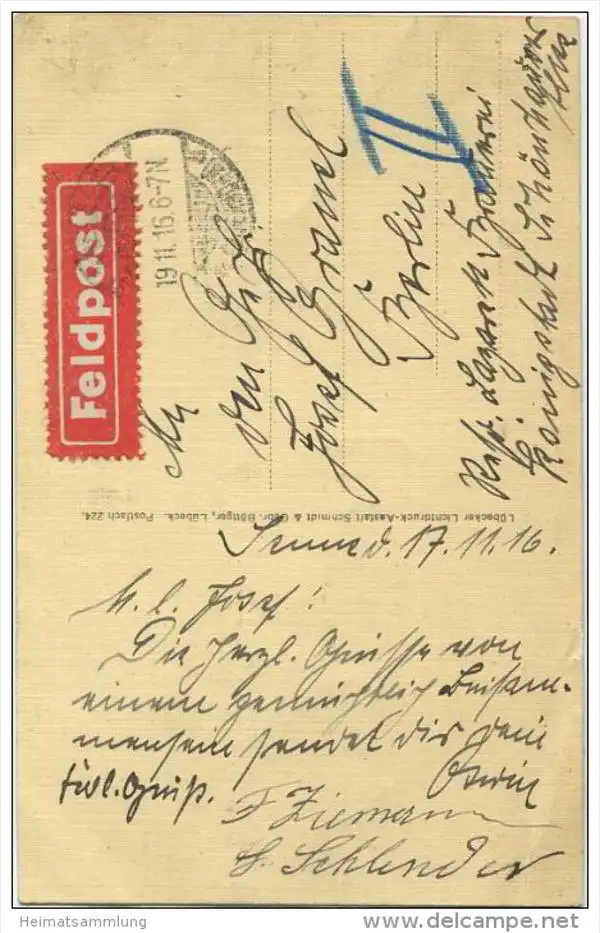 Feldpost
19.11.16. 6-7N
An
den
Josef
Berlin
II
Res. Lazarett Brauerei
Königstadt Schönhauser
Allee
Lübecker Lichtdruck-Anstalt Schmidt & Gebr. Böttger, Lübeck. Postfach 224.
d. 17.11.16.
M. l. Josef!
Die herzl. Grüsse von
einem gemütlich Beisam-
mensein sendet dir dein
frdl. Gruß.
F Ziemann
Schlender
Heimatsammlung
www.delcampe.net